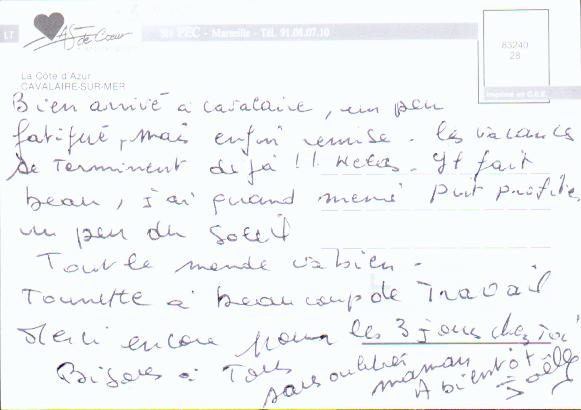 LT
AS de Coeur
Sté PEC - Marseille - Tél. 91.08.07.10
83240
28
La Côte d'Azur
CAVALAIRE-SUR-MER
Imprimé en C.E.E.
Bien arrivé à cavalaire, un peu
fatigué, mais enfin remise. les vacances
se Terminent déjà !! Helas. Il fait
beau, j'ai quand meme put profiter
un peu du Soleil
Tout le monde va bien.
à beaucoup de Travail
Merci encore pour les 3 jours chez Toi
Bisous à Tous
sans oublier
maman
A bientôt
Joëlle